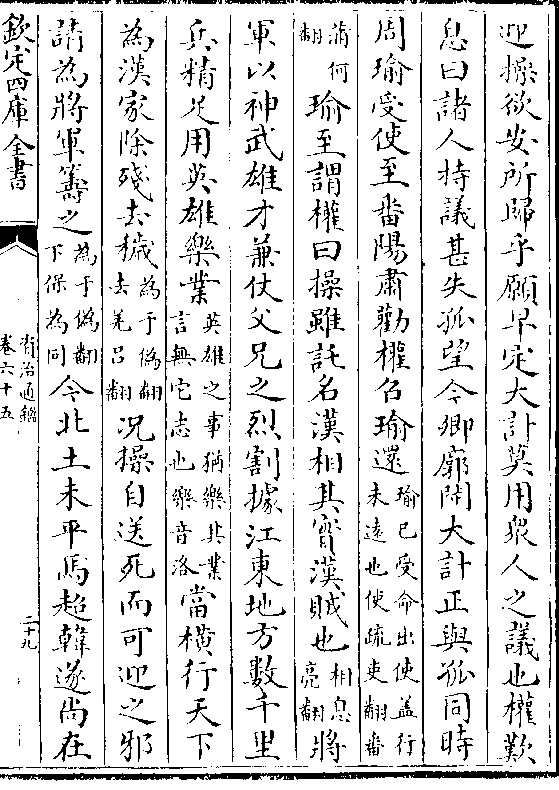 迎操欲安所歸乎願早定大計莫用衆人之議也權歎
息曰諸人持議甚失孤望今卿廓開大計正與孤同時
周瑜受使至番陽肅勸權召瑜還瑜已受命出使盖行未遠也使疏吏翻番
蒲何翻瑜至謂權曰操雖託名漢相其實漢賊也相息亮翻將
軍以神武雄才兼仗父兄之烈割據江東地方數千里
兵精足用英雄樂業英雄之事猶樂其業言無它志也樂音洛當橫行天下
為漢家除殘去穢為于偽翻去羌呂翻况操自送死而可迎之邪
請為將軍籌之為于偽翻下保為同今北土未平馬超韓遂尚在
欽定四庫全書
資治通鑑
卷六十五
二十九